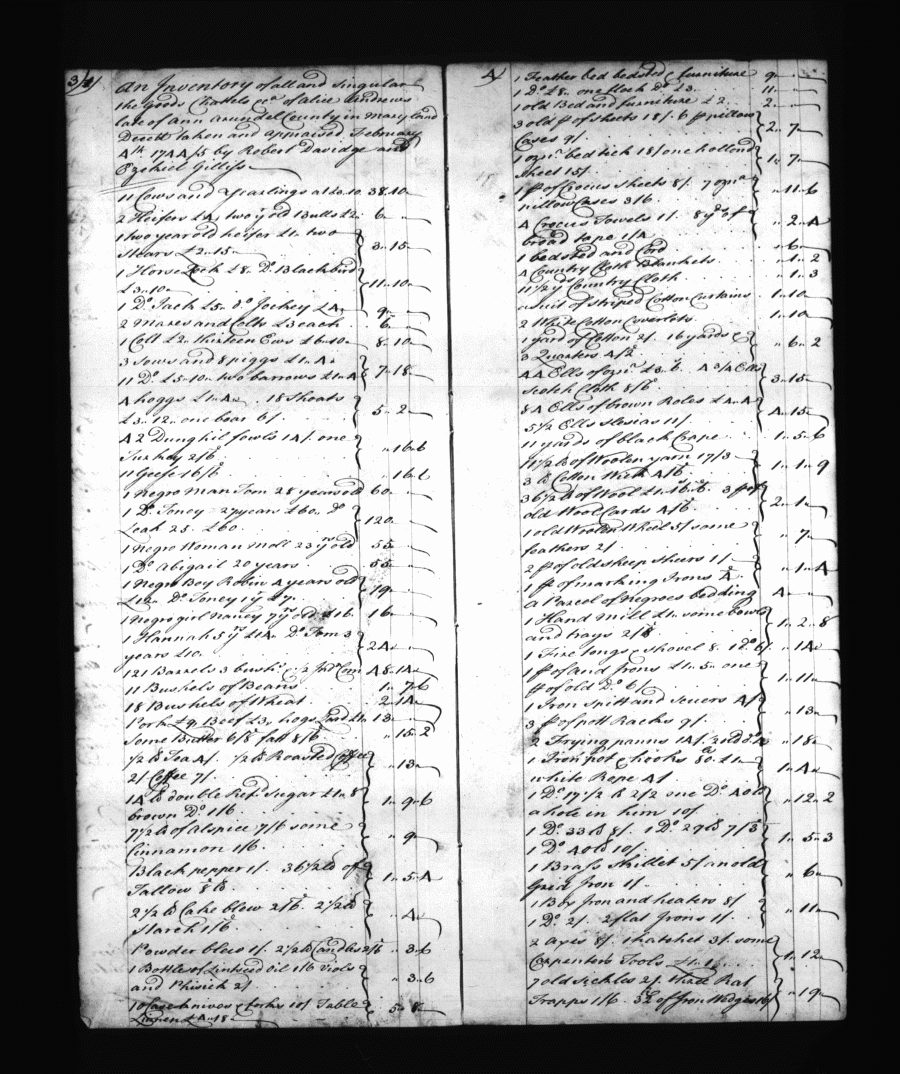 3/4/
An Inventory of all and Singular
the goods Chattels &c.ª of Alice Andrews
late of Ann Arundel County in Maryland
Deced taken and appraised February
4th. 1744/5 by Robert Davidge and
Ezekiel Gilliss
11 Cows and Yearlings at 3..10. 38..10..
2 Heifers £4, two yr old Bulls £2. 6
1 two year old heifer £1.. two
Stears £2..15.. 3..15
1 Horse £8. Do. Blackbird
£3..10.. 11..10
1 Do. Jack £5.. do Jockey £4.. 9..
2 Mares and Colts £3 each 6..
1 Colt £2.. thirteen Ews £6..10.. 8..10
3 Sows and 8 piggs £1..4..
11 Do. £5..10.. two barrows £1..4 7..18
4 hoggs £1..4.. 18 Shoats
£3..12.. one boar 6/. 5..2
42 Dunghil fowls 14/. one
Turkey 2/6. ..16..6
11 Geese 16/6. ..16..6
1 Negro Man Tom 28 years old 60..
1 Do. Toney 27 years £60.. Do
Leah 25. £60. 120
1 Negro Woman Moll 23 yrs old 55
1 Do. Abigail 20 years 55
1 Negro Boy Robin 4 years old
£12.. Do. Toney 1 yr £7. 19..
1 Negro girl Nancy 7 yrs old £16. 16..
1 Hannah 5 yr £14.. Do. Tom 3
years £10. 24..
121 Barrels 3 bush.s Corn 48..14..
11 Bushels of Beans 1..7..6
18 Bushels of Wheat 2..14..
Pork £9. Beef £3, hogs Lard £1.. 13..
Some Butter 6/8 fatt 8/6 ..15..2
1/2 lb Tea 4/. 1/2 lb Roasted Coffee
2/ Coffee 7/. ..13..
14 lb double Ref.d Sugar £1..8
brown Do. 1/6 1..9..6
7 1/2 lb of alspice 7/6 some
Cinnamon 1/6. ..9..
Black pepper 1/. 36 1/2 lb of
Tallow 1..5..4
2 1/2 lb Cake blew 2/6. 2 1/2 lb
Starch 1/6. ..4..
Powder blew 1/. 2 1/2 lb Candles 2/6 ..3..6
1 Bottle of Lintseed Oil 1/6 Viols
and Phisick 2/ ..3..6
10 Case knives & forks 10/ Table
Linnen £4..18 5..8..
4/
1 Feather bed bedsted & furniture 9..
1 Do. £8.. one flock Do. £3. 11..
1 old Bed and furniture £2. 2..
3 old pr of sheets 18/. 6 pr pillow
Cases 9/. 2..7..
1 ozn. bed tick 18/ one holland
sheet 15/. 1..7..
1 pr of Crocus sheets 8/. 7 ozn.
pillow Cases 3/6. ..11..6
4 Crocus Towels 1/. 8 yds of
broad tape 1/4. ..2..4
1 bedsted and Cord ..6..
4 Country Cloth Blankets ..1..2
11 1/2 yds Country Cloth ..1..3
a suit of striped Cotton Curtains 1..10
2 White Cotton Coverlets. 1..10
1 yard of Cotton 2/. 16 yards &
3 Quarters 4/2 ..6..2
44 Ells of ozn. £3..6. 4 3/4 Ells
Scotch Cloth 8/6. 3..15
84 Ells of brown Roles £4..4
5 1/2 Ells slesias 11/. 4..15
11 yards of black Crape 1..5..6
11 1/2 lb of Woolen yarn 17/3
3 lb Cotton Wick 4/6. 1..1..9
36 1/2 lb of Wool £1..16..6. 3 pr of
old Wool Cards 4/6. 2..1..
1 old Woolen Wheel 5/ some
feathers 2/ ..7..
2 pr of old sheep sheers 1/
1 pr of marking Irons ..1..4
a Parcel of Negroes bedding 4..
1 Hand Mill £1.. some bowls
and trays 2/8. 1..2..8
1 Fire tongs & shovel 8. 1 Do. 6/. ..14..
1 pr of and Irons £1..5.. one
pr of old Do. 6/. 1..11..
1 Iron Spitt and scuers 4/
3 pr of pott Racks 9/. ..13..
2 Frying panns 14/. 2 old ..18..
1 Iron pot & hooks £1..
white Rope 4/ 1..4..
1 Do. 17 1/2 lb 2/2 one Do. 40 lb
a hole in him 10/ ..12..2
1 Do. 33 lb 8/. 1 Do. 29 lb 7/3
1 Do. 40 lb 10/. 1..5..3
1 Brass Skillet 5/ an old
Grid Iron 1/. ..6..
1 Box Iron and heaters 8/
1 Do. 2/. 2 flat Irons 1/. ..11..
2 axes 8/. 1 hatchet 3/. some
Carpenters Tools £1..1.. 1..12
7 old Sickles 2/. three Rat
Trapps 1/6. of Iron Wedges ..19..